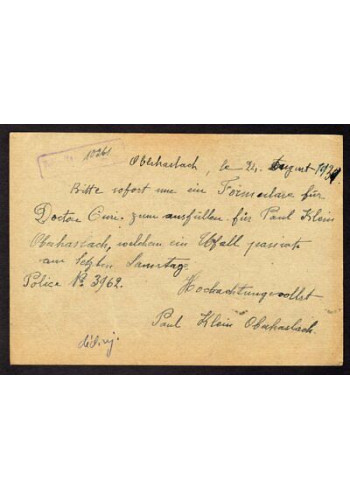 10261
Oberhaslach, le 24. August 1931
Bitte sofort um ein Formulare für
Doctor zum ausfüllen für Paul Klein
Oberhaslach, welchem ein Unfall passierte
am letzten Samstag.
Police No 3962.
Hochachtungsvollst
Paul Klein Oberhaslach.